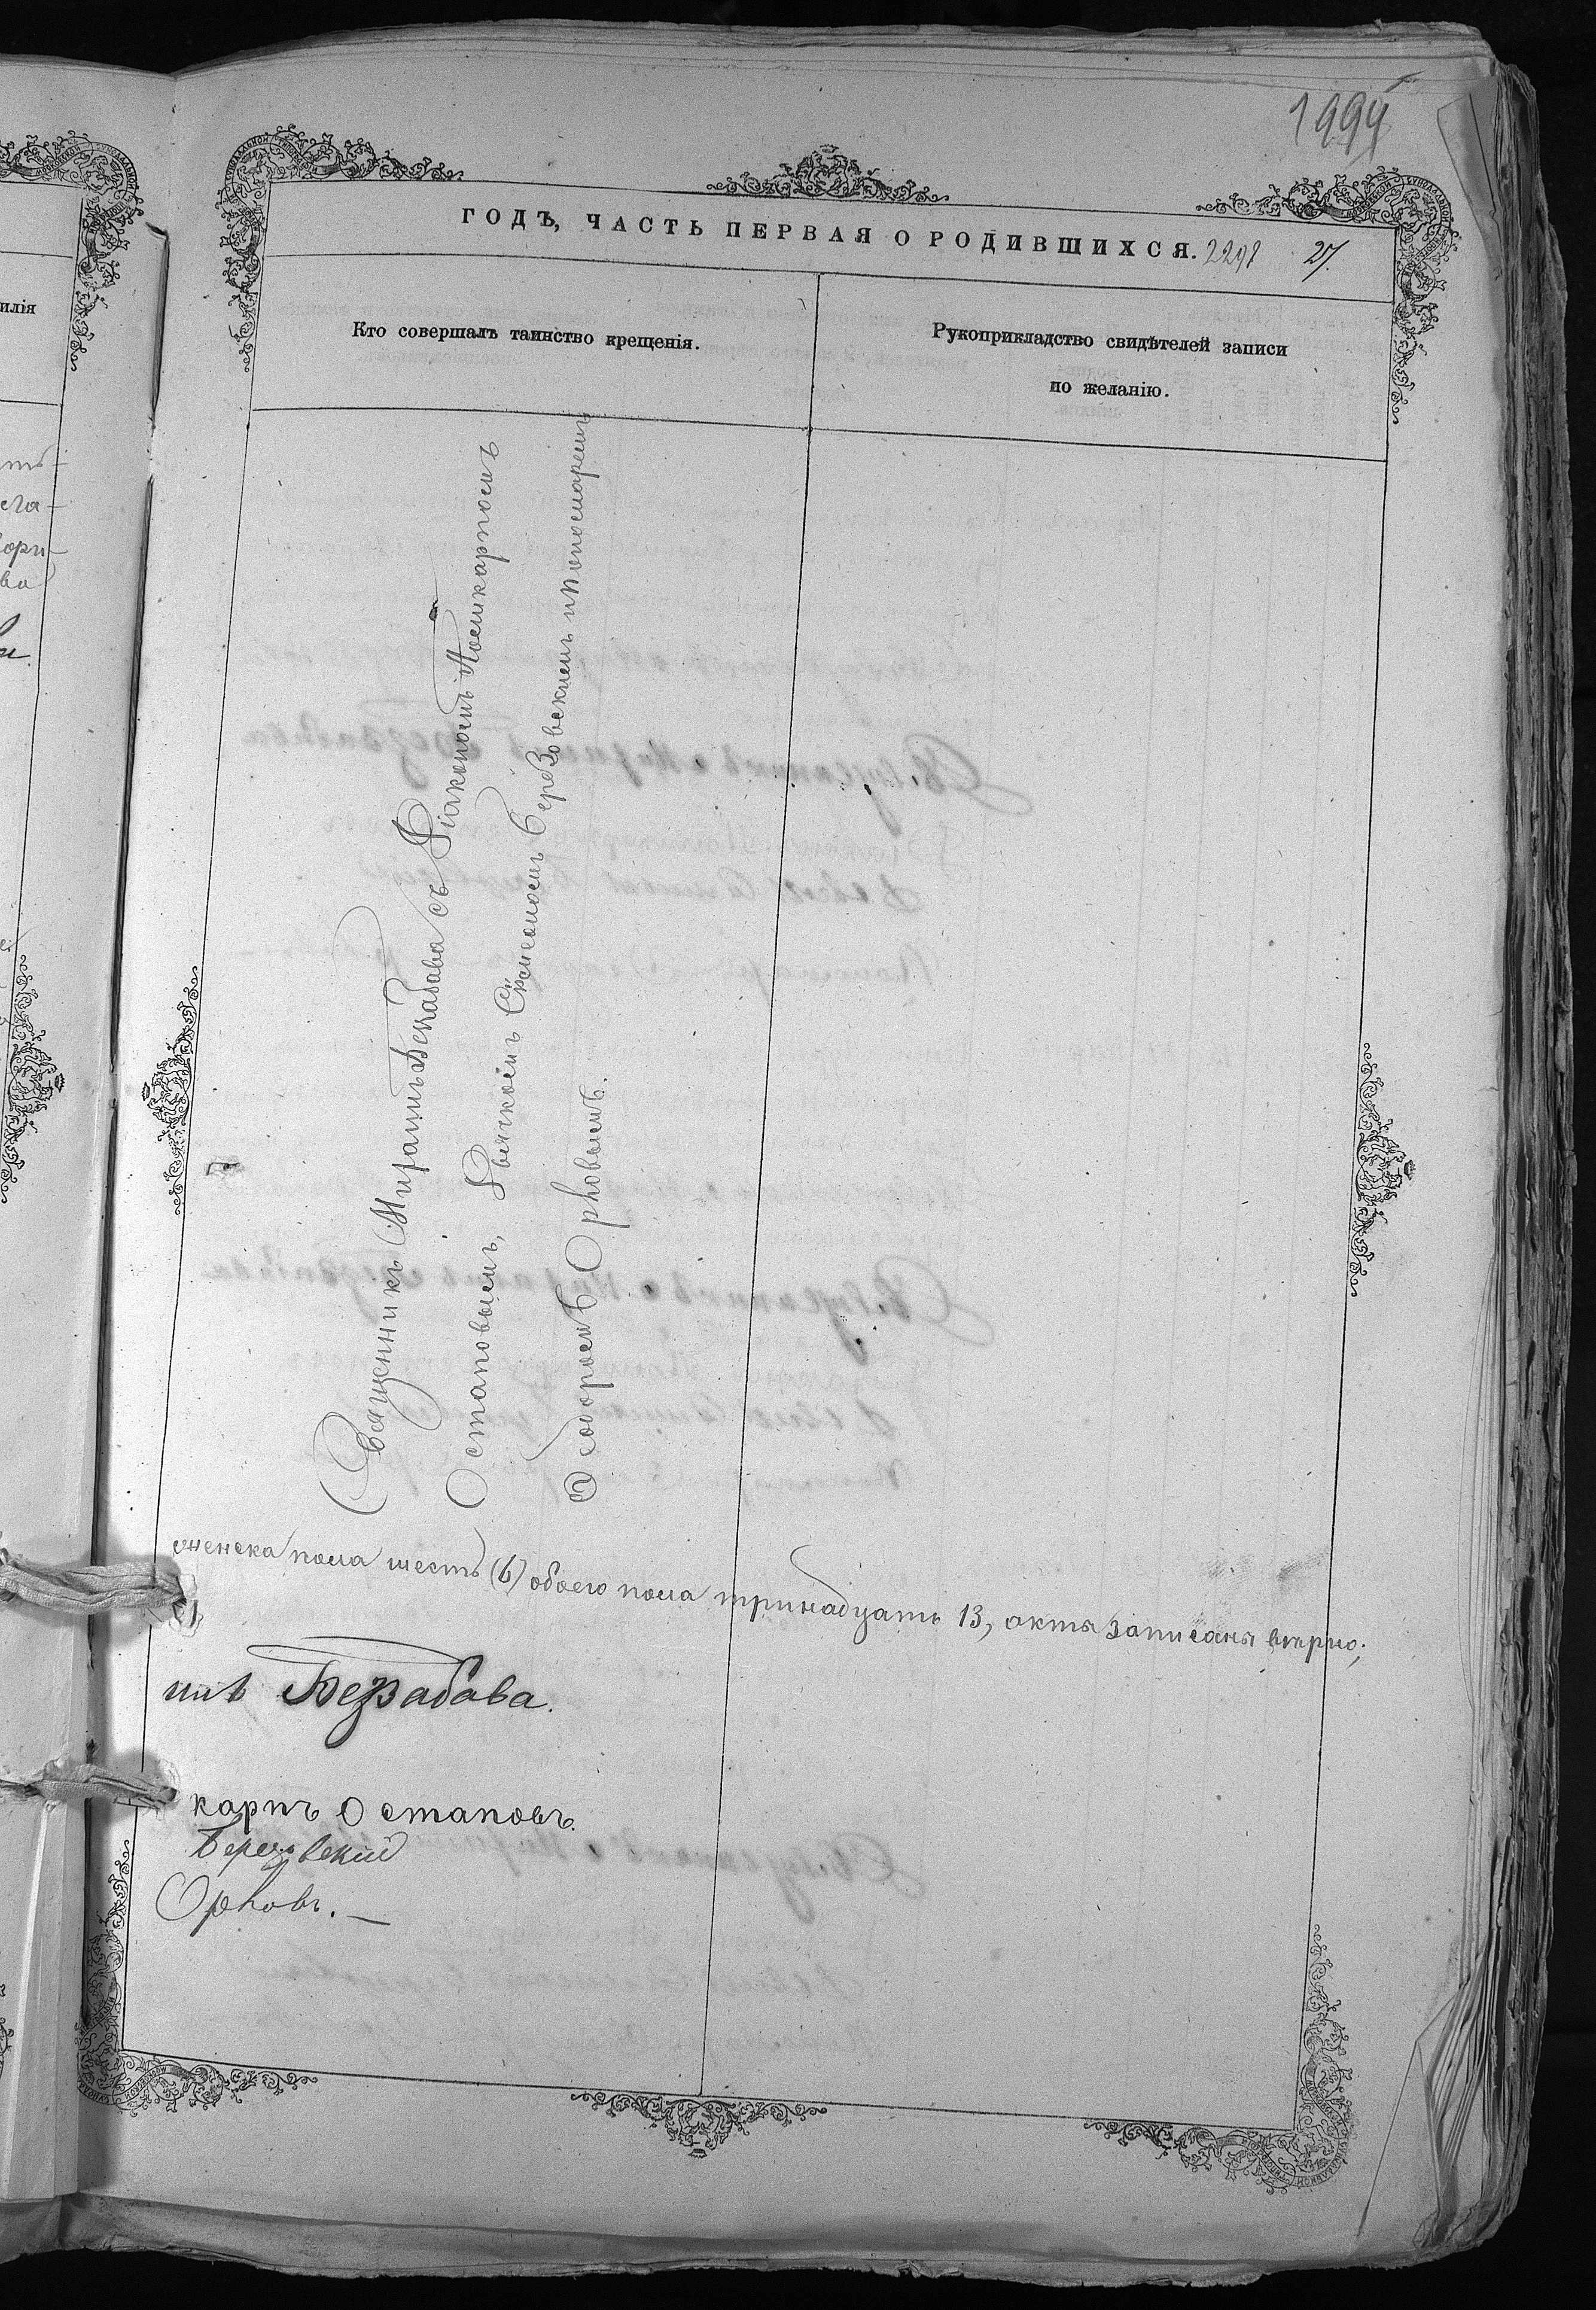 1994
ГОДЪ, ЧАСТЬ ПЕРВАЯ О РОДИВШИХСЯ. 2298 27.
Кто совершалъ таинство крещенія.
Рукоприкладство свидѣтелей записи
по желанію.
Священникъ съ Діакономъ Поликарпомъ
Остаповымъ, Дьячкомъ Симеономъ Березовскимъ и Пономаремъ
Ѳеодоромъ Орловымъ.
женска пола шесть (6) обоего пола тринадцать 13, акты записаны вѣрно;
карпъ Остаповъ.
Березовский
Орловъ. —